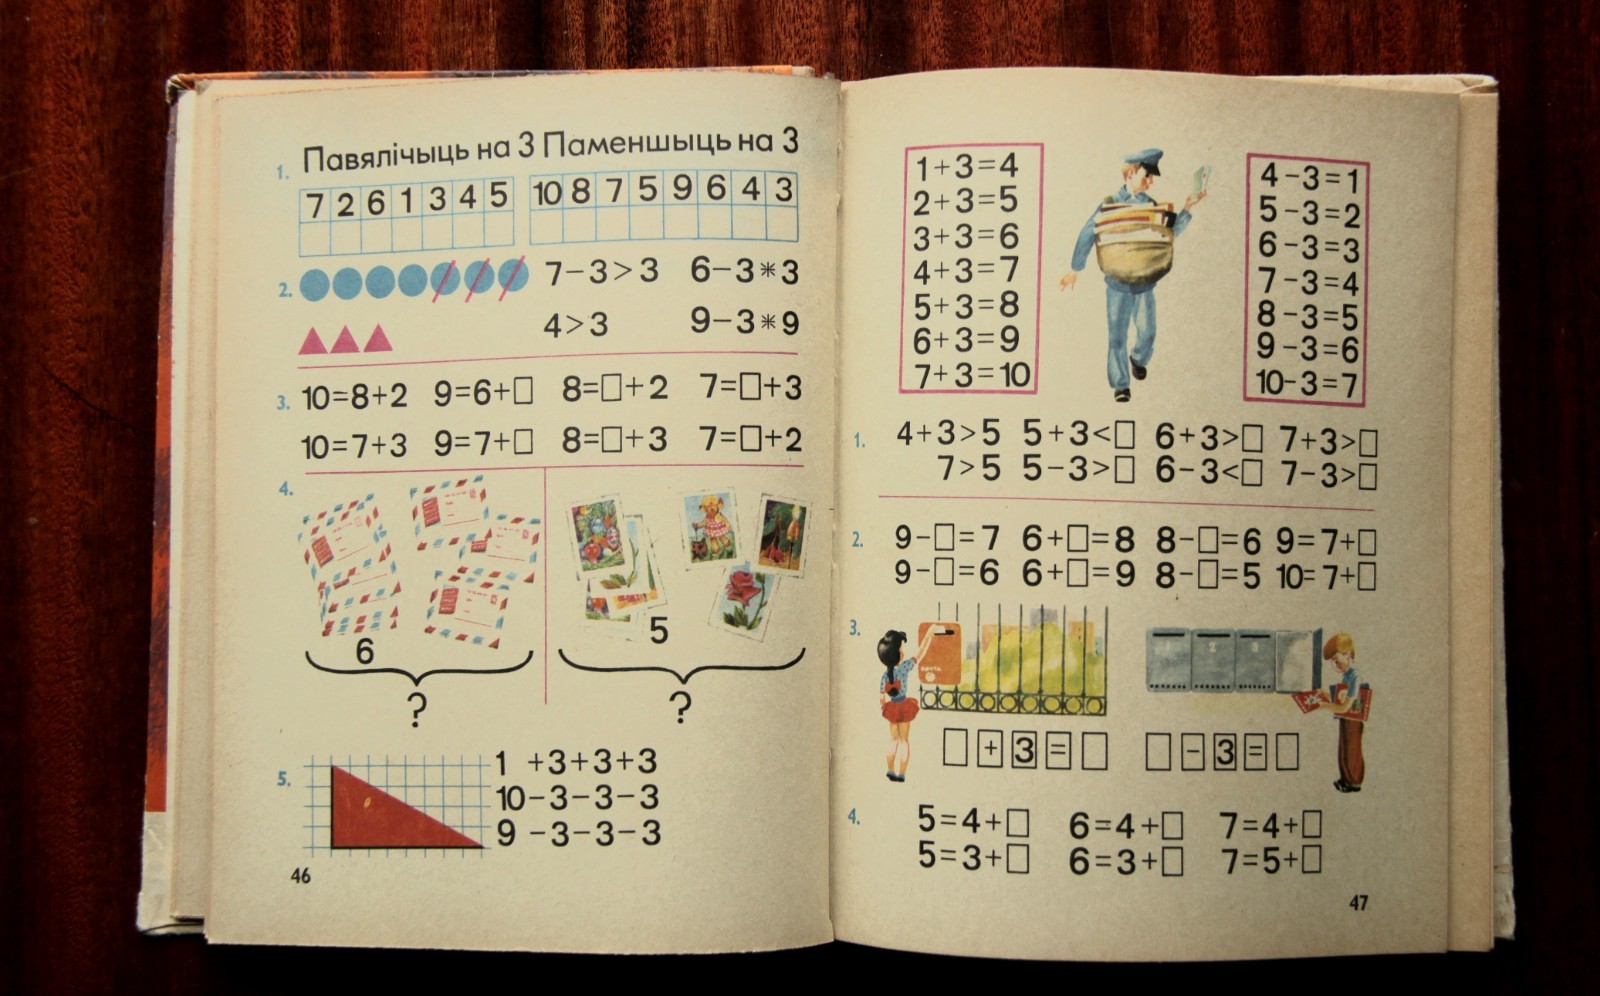 Павялічыць на 3 Паменшыць на 3
1.
7 2 6 1 3 4 5
10 8 7 5 9 6 4 3
2.
7-3>3 6-3*3
4>3 9-3*9
3.
10=8+2 9=6+□ 8=□+2 7=□+3
10=7+3 9=7+□ 8=□+3 7=□+2
4.
6
?
5
?
5.
1 +3+3+3
10-3-3-3
9 -3-3-3
46
1+3=4
2+3=5
3+3=6
4+3=7
5+3=8
6+3=9
7+3=10
4-3=1
5-3=2
6-3=3
7-3=4
8-3=5
9-3=6
10-3=7
1.
4+3>5 5+3<□ 6+3>□ 7+3>□
7>5 5-3>□ 6-3<□ 7-3>□
2.
9-□=7 6+□=8 8-□=6 9=7+□
9-□=6 6+□=9 8-□=5 10=7+□
3.
1 2 3
□+3=□ □-3=□
4.
5=4+□ 6=4+□ 7=4+□
5=3+□ 6=3+□ 7=5+□
47